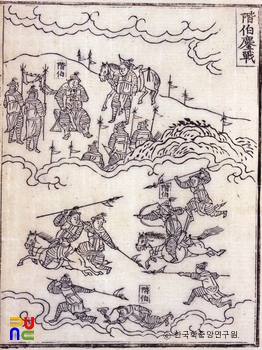 階伯鏖戰
階伯
階伯
階伯
© 한국학중앙연구원